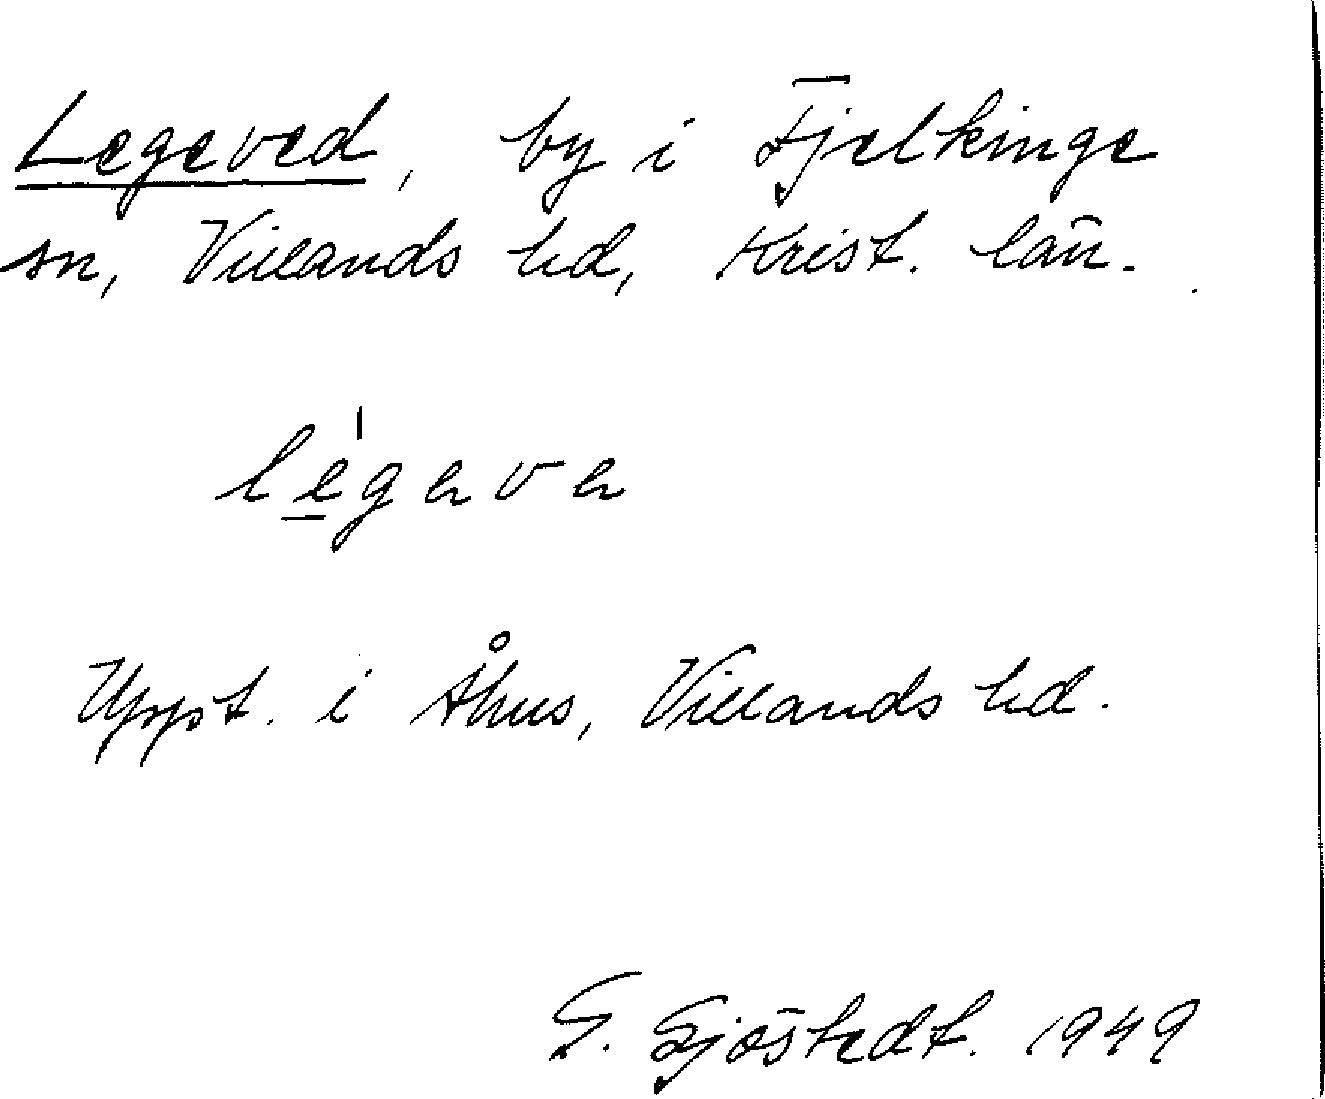 Legeved, by i Fjelkinge
sn, Villands hd, Krist. län.
lègava
Uppt. i Åhus, Villands hd.
G. Sjöstedt. 1949